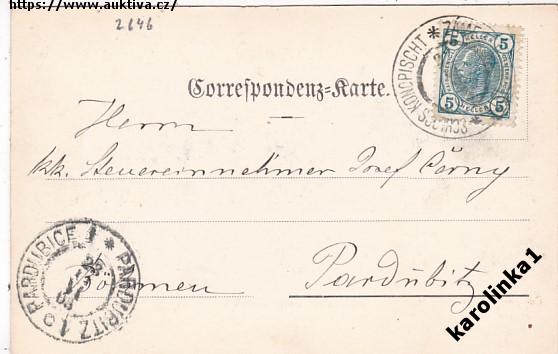 https://www.auktiva.cz
2646
5 HELLER 5
5 HELLER 5
KONOPISCHT *
Correspondenz-Karte.
Herrn
kk. Steuereinnehmer Josef Černy
PARDUBICE 1 * PARDUBITZ 1
Böhmen
Pardubitz
karolinka1